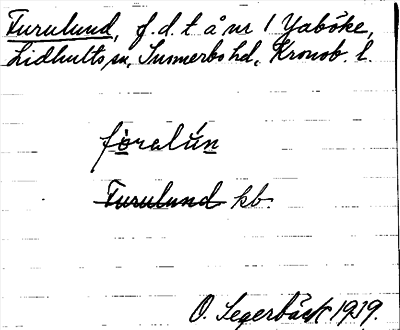 Furulund, f.d. t å nr 1 Yaböke,
Lidhults sn, Sunnerbo hd, Kronob. l.
fòralún
Furulund kb.
O. Segerbäck 1939.